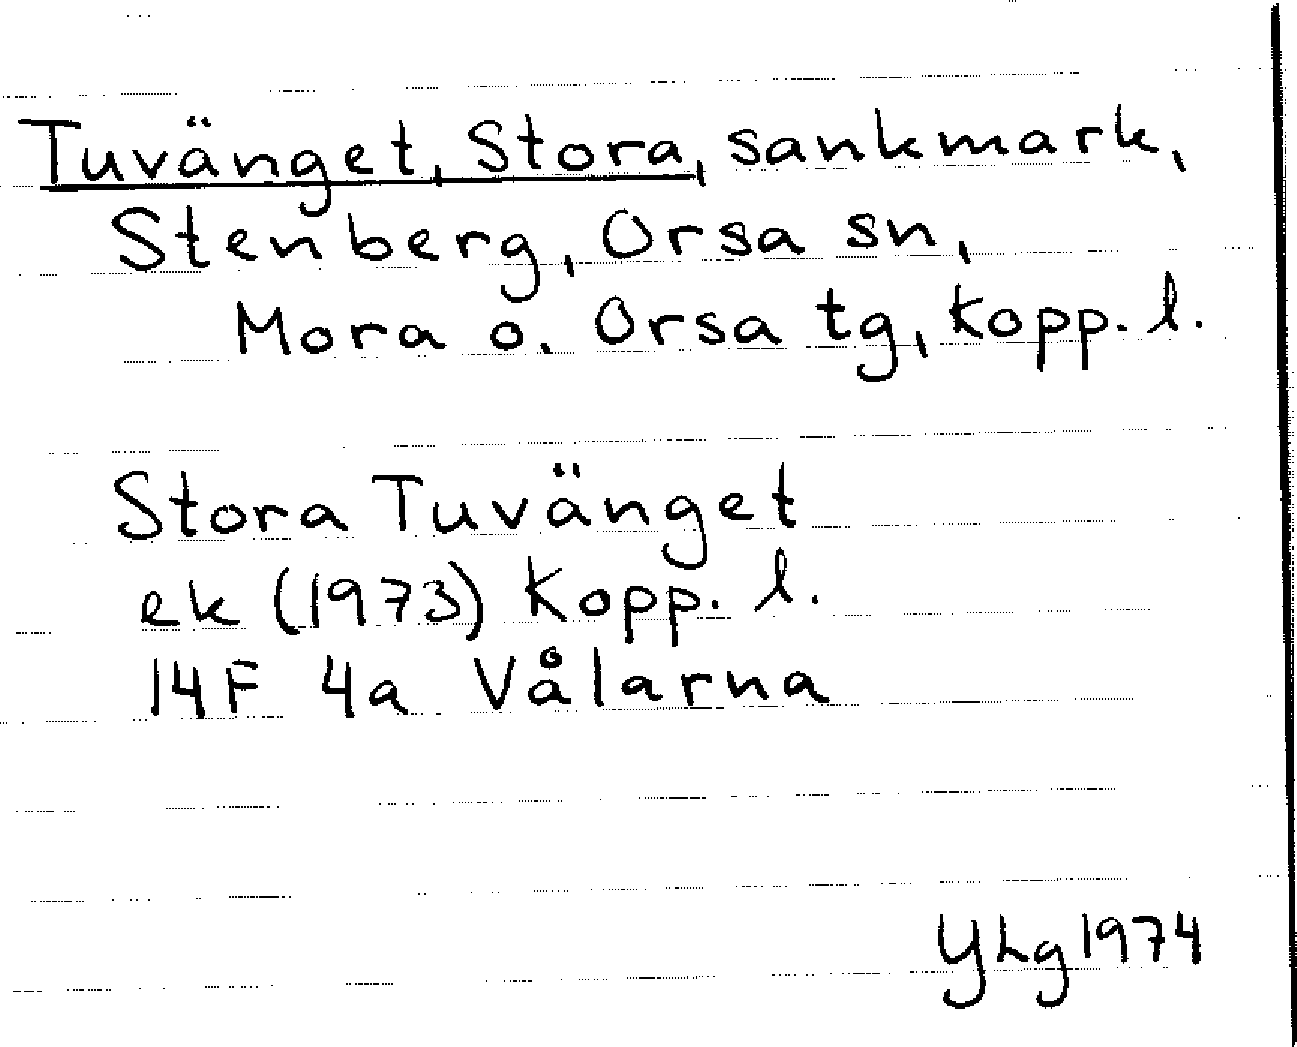 Tuvänget, Stora, sankmark,
Stenberg, Orsa sn,
Mora o. Orsa tg, Kopp. l.
Stora Tuvänget
ek (1973) Kopp. l.
14F 4a Vålarna
YLg 1974